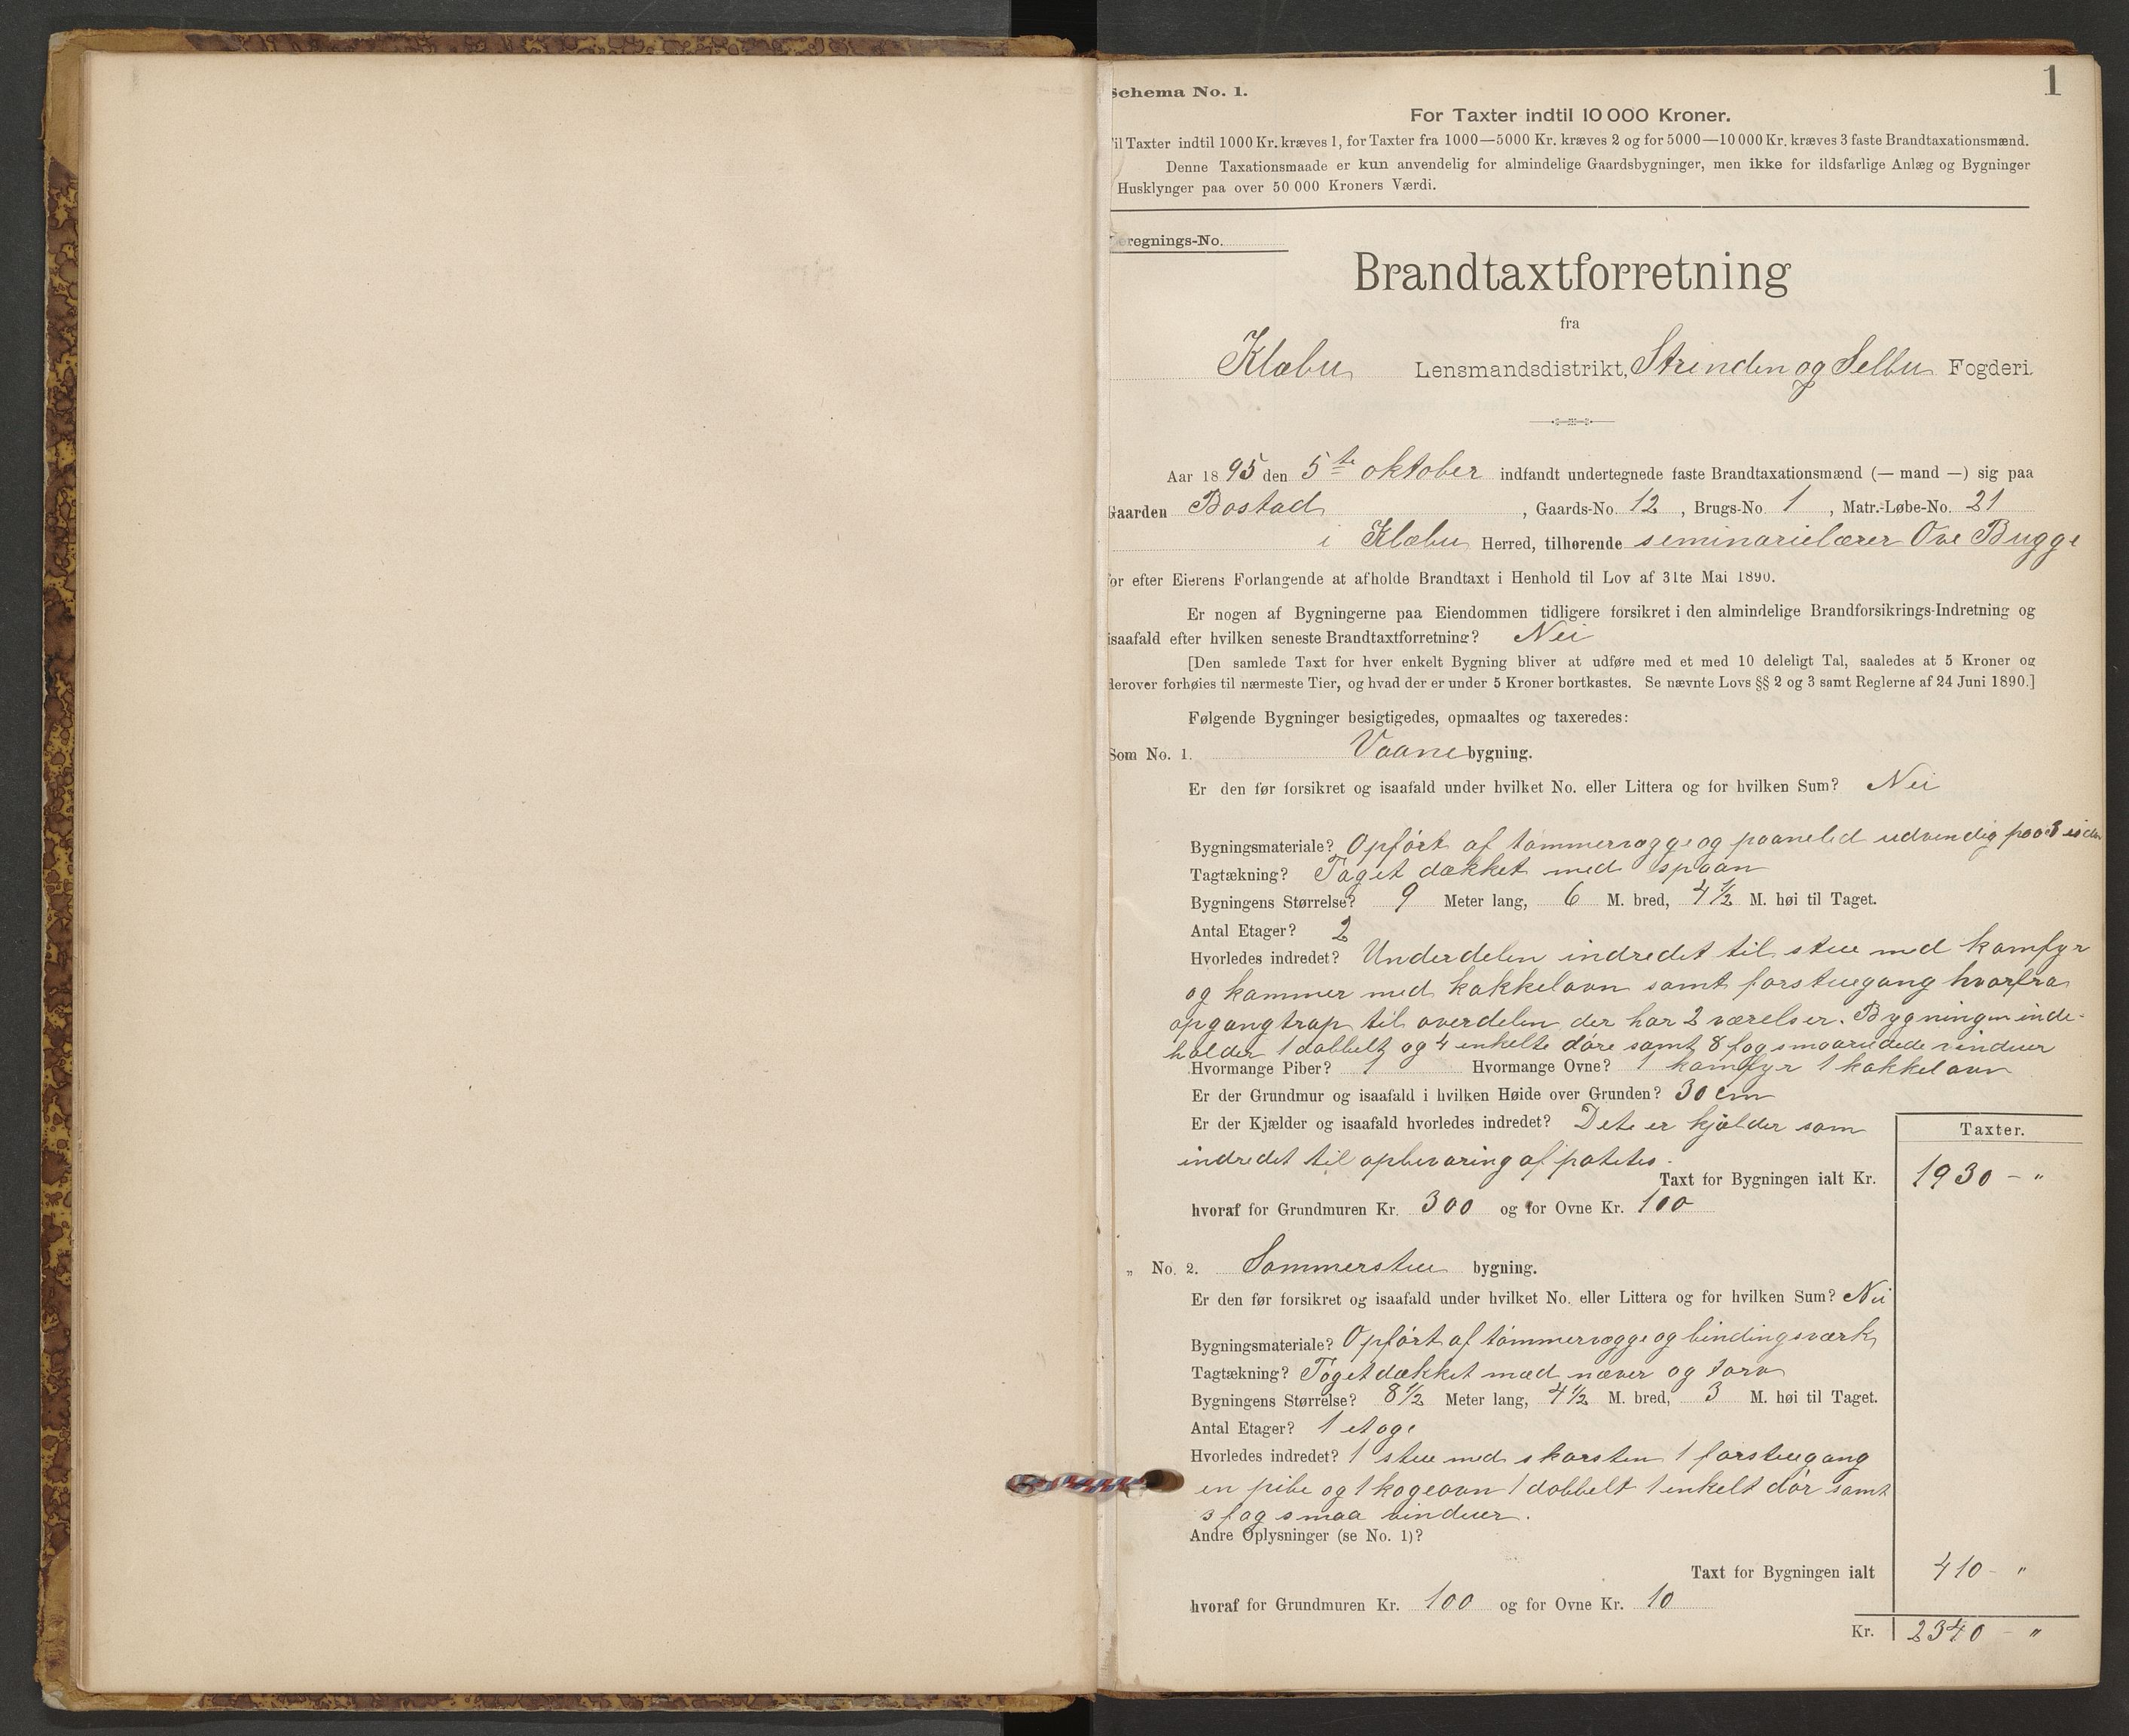 1
Schema No. 1.
For Taxter indtil 10 000 Kroner.
Til Taxter indtil 1000 Kr. kræves 1, for Taxter fra 1000—5000 Kr. kræves 2 og for 5000—10 000 Kr. kræves 3 faste Brandtaxationsmænd.
Denne Taxationsmaade er kun anvendelig for almindelige Gaardsbygninger, men ikke for ildsfarlige Anlæg og Bygninger
Husklynger paa over 50 000 Kroners Værdi.
Beregnings-No.
Brandtaxtforretning
fra
Klæbu Lensmandsdistrikt, Strinden og Selbu Fogderi.
Aar 1895 den 5te oktober indfandt undertegnede faste Brandtaxationsmænd (— mand —) sig paa
Gaarden Bostad , Gaards-No. 12 , Brugs-No. 1 , Matr.-Løbe-No. 21
i Klæbu Herred, tilhørende seminarielærer Ove Bugge
for efter Eierens Forlangende at afholde Brandtaxt i Henhold til Lov af 31te Mai 1890.
Er nogen af Bygningerne paa Eiendommen tidligere forsikret i den almindelige Brandforsikrings-Indretning og
isaafald efter hvilken seneste Brandtaxtforretning? Nei
[Den samlede Taxt for hver enkelt Bygning bliver at udføre med et med 10 deleligt Tal, saaledes at 5 Kroner og
derover forhøies til nærmeste Tier, og hvad der er under 5 Kroner bortkastes. Se nævnte Lovs §§ 2 og 3 samt Reglerne af 24 Juni 1890.]
Følgende Bygninger besigtigedes, opmaaltes og taxeredes:
Som No. 1. Vaanebygning.
Er den før forsikret og isaafald under hvilket No. eller Littera og for hvilken Sum? Nei
Bygningsmateriale? Opført af tømmervægge og paaneled udvendig paa 3 sider
Tagtækning? Taget dækket med spaan
Bygningens Størrelse? 9 Meter lang, 6 M. bred, 4 1/2 M. høi til Taget.
Antal Etager? 2
Hvorledes indredet? Underdelen indredet til stue med komfyr
og kammer med kakkelovn samt forstuegang hvorfra
opgangtrap til overdelen der har 2 værelser. Bygningen inde-
holder 1 dobbelt og 4 enkelte døre samt 8 fag smaarudede vinduer
Hvormange Piber? 1 Hvormange Ovne? 1 komfyr 1 kakkelovn
Er der Grundmur og isaafald i hvilken Høide over Grunden? 30 cm
Er der Kjælder og isaafald hvorledes indredet? Dete er kjælder som
indredet til opbevaring af potetes.
Taxter.
Taxt for Bygningen ialt Kr. 1930 - "
hvoraf for Grundmuren Kr. 300 og for Ovne Kr. 100
" No. 2. Sommerstue bygning.
Er den før forsikret og isaafald under hvilket No. eller Littera og for hvilken Sum? Nei
Bygningsmateriale? Opført af tømmervægge og bindingsværk
Tagtækning? Taget dækket mæd næver og torv
Bygningens Størrelse? 8 1/2 Meter lang, 4 1/2 M. bred, 3 M. høi til Taget.
Antal Etager? 1 etage
Hvorledes indredet? 1 stue med skorsten 1 forstuegang
en pibe og 1 kogeovn 1 dobbelt 1 enkelt dør samt
3 fag smaa vinduer.
Andre Oplysninger (se No. 1)?
Taxt for Bygningen ialt 410 - "
hvoraf for Grundmuren Kr. 100 og for Ovne Kr. 10
Kr. 2340 - "